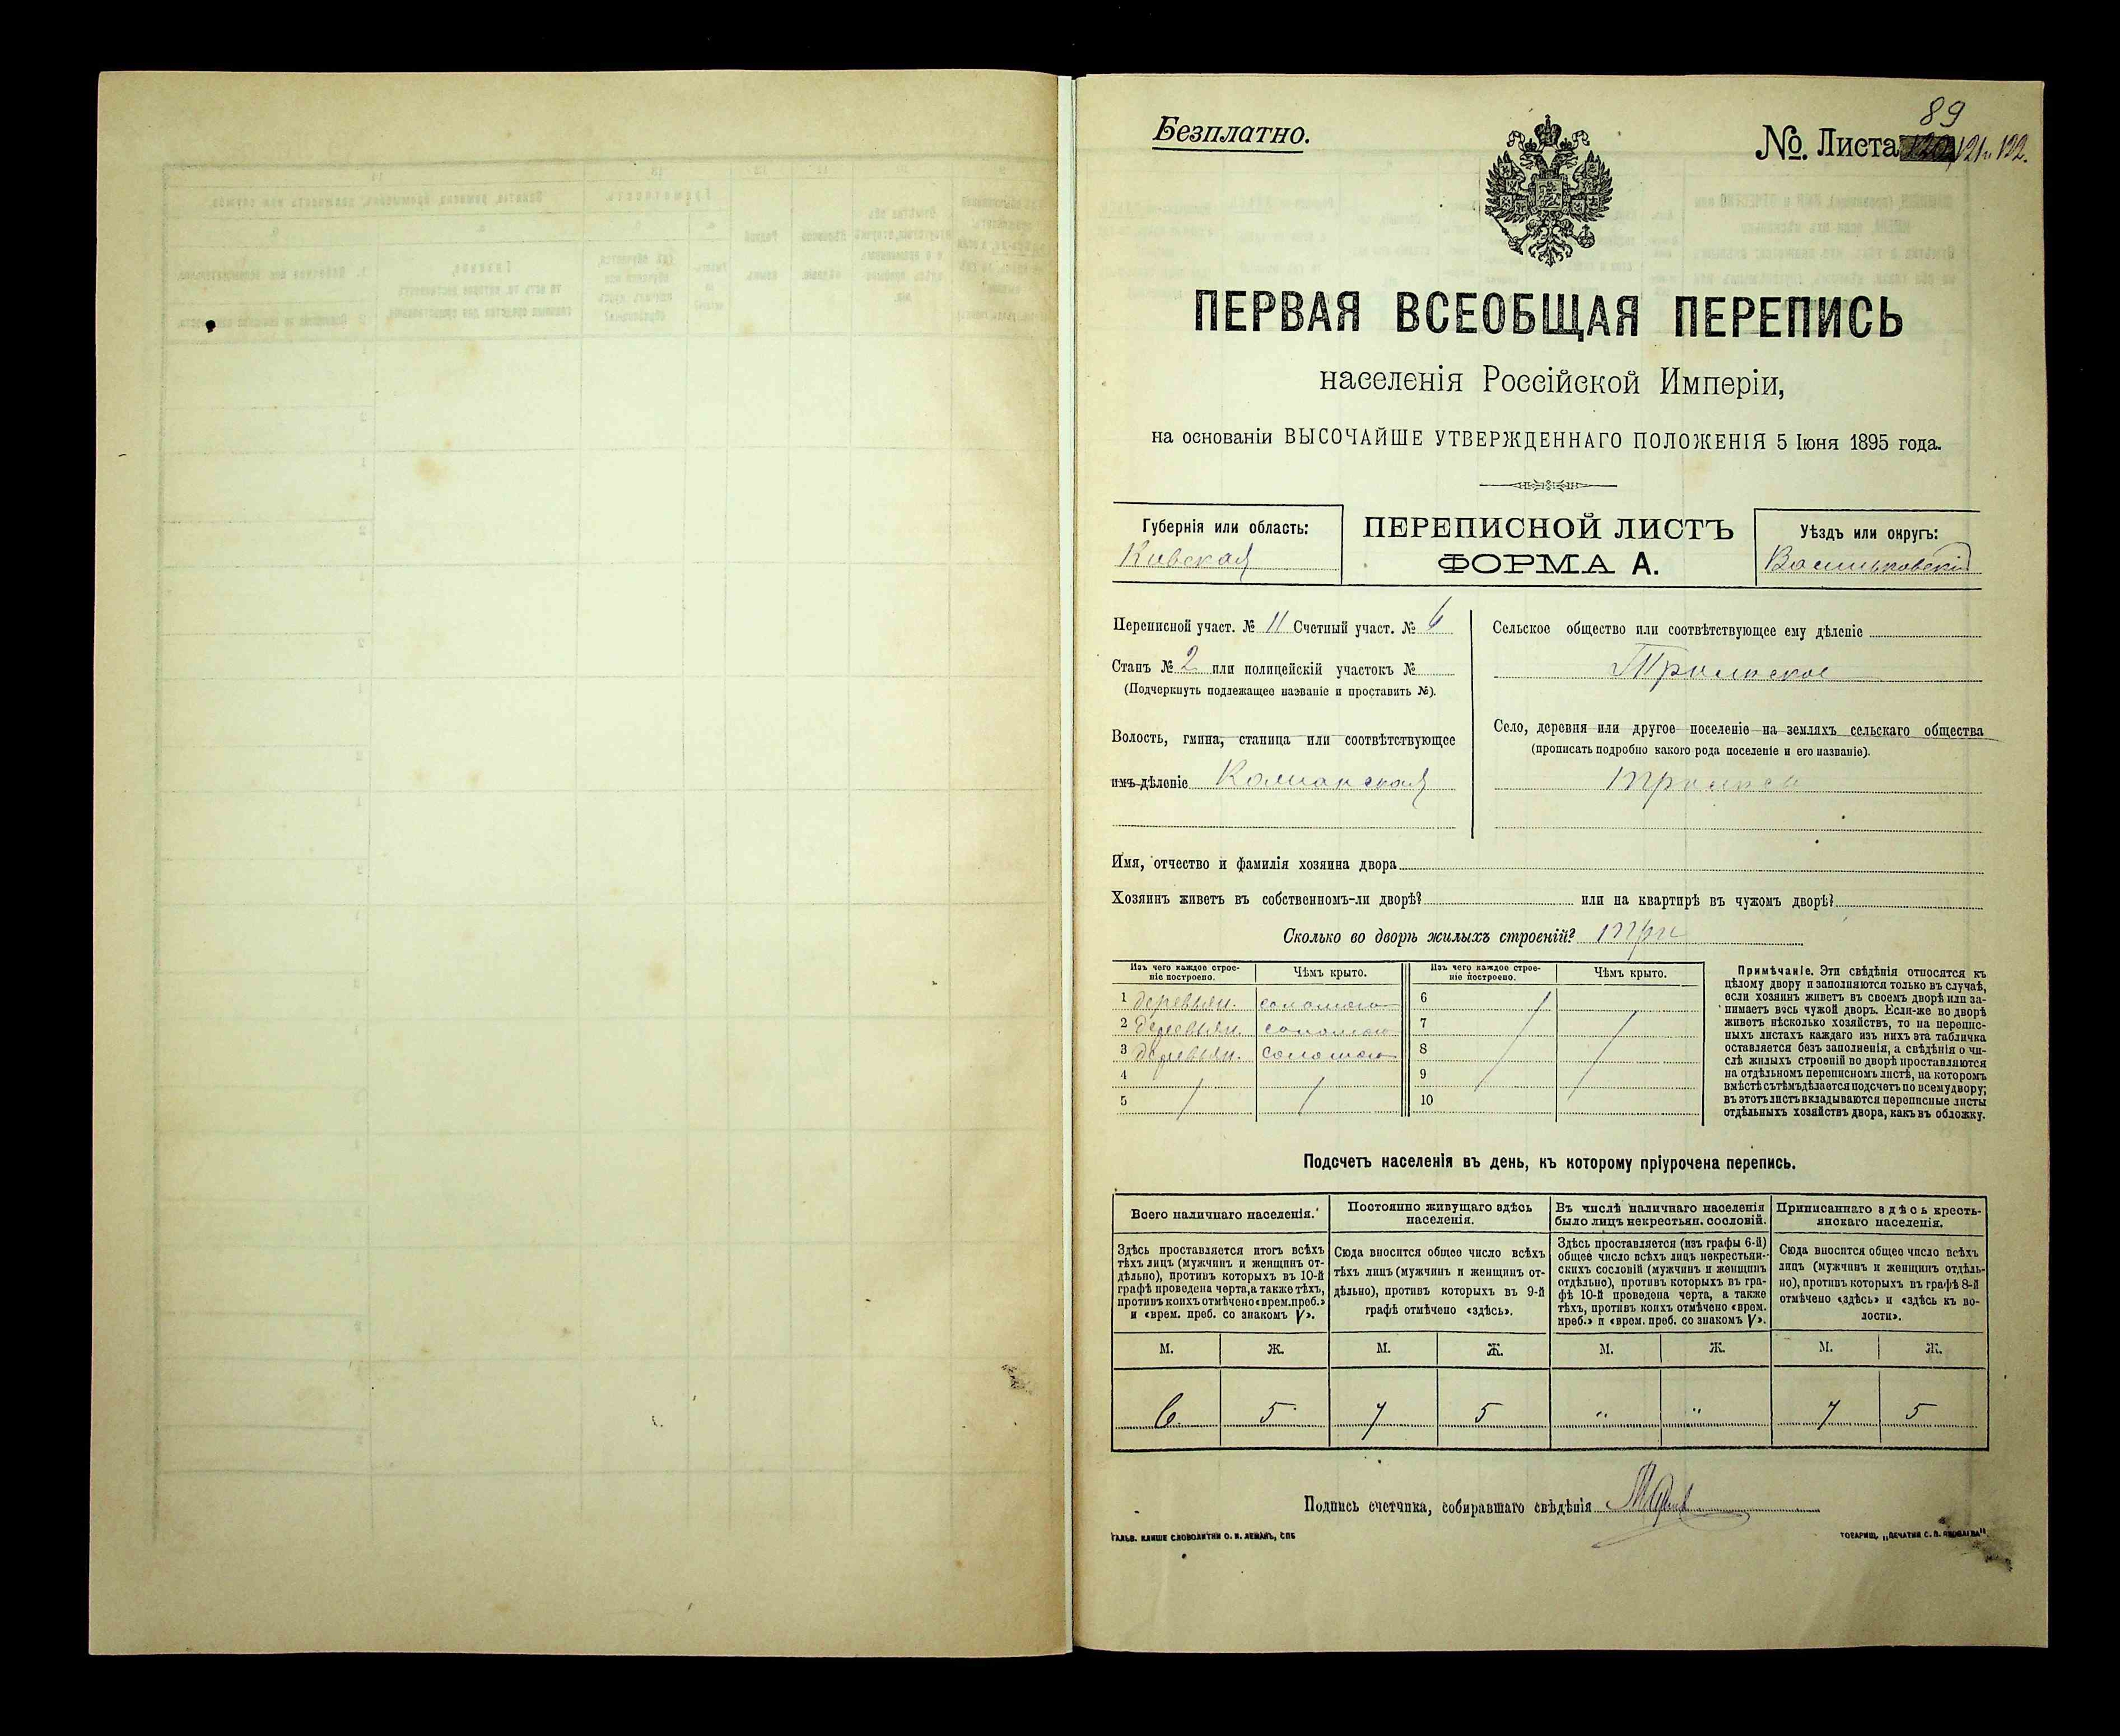 89
Безплатно.
№. Листа 120, 121 и 122.
ПЕРВАЯ ВСЕОБЩАЯ ПЕРЕПИСЬ
населенія Россійской Имперіи,
на основаніи ВЫСОЧАЙШЕ УТВЕРЖДЕННАГО ПОЛОЖЕНІЯ 5 Іюня 1895 года.
Губернія или область:
Кіевская
ПЕРЕПИСНОЙ ЛИСТЪ
ФОРМА А.
Уѣздъ или округъ:
Васильковскій
Переписной участ. № 11 Счетный участ. № 6
Станъ № 2 или полицейскій участокъ №
(Подчеркнуть подлежащее названіе и проставить №).
Волость, гмина, станица или соотвѣтствующее
имъ дѣленіе
Сельское общество или соотвѣтствующее ему дѣленіе
Село, деревня или другое поселеніе на земляхъ сельскаго общества
(прописать подробно какого рода поселеніе и его названіе).
Имя, отчество и фамилія хозяина двора
Хозяинъ живетъ въ собственномъ-ли дворѣ? или на квартирѣ въ чужомъ дворѣ?
Сколько во дворѣ жилыхъ строеній? три
Изъ чего каждое строе-
ніе построено.
Чѣмъ крыто.
Изъ чего каждое строе-
ніе построено.
Чѣмъ крыто.
1 деревьян. соломою 6
2 деревьян. соломою 7
3 деревьян. соломою 8
4 9
5 10
Примѣчаніе. Эти свѣдѣнія относятся къ
цѣлому двору и заполняются только въ случаѣ,
если хозяинъ живетъ въ своемъ дворѣ или за-
нимаетъ весь чужой дворъ. Если-же во дворѣ
живетъ нѣсколько хозяйствъ, то на перепис-
ныхъ листахъ каждаго изъ нихъ эта табличка
оставляется безъ заполненія, а свѣдѣнія о чи-
слѣ жилыхъ строеній во дворѣ проставляются
на отдѣльномъ переписномъ листѣ, на которомъ
вмѣстѣ съ тѣмъ дѣлается подсчетъ по всему двору;
въ этотъ листъ вкладываются переписные листы
отдѣльныхъ хозяйствъ двора, какъ въ обложку.
Подсчетъ населенія въ день, къ которому пріурочена перепись.
Всего наличнаго населенія.
Здѣсь проставляется итогъ всѣхъ
тѣхъ лицъ (мужчинъ и женщинъ от-
дѣльно), противъ которыхъ въ 10-й
графѣ проведена черта, а также тѣхъ,
противъ коихъ отмѣчено «врем. преб.»
и «врем. преб. со знакомъ V».
Постоянно живущаго здѣсь
населенія.
Сюда вносится общее число всѣхъ
тѣхъ лицъ (мужчинъ и женщинъ от-
дѣльно), противъ которыхъ въ 9-й
графѣ отмѣчено «здѣсь».
Въ числѣ наличнаго населенія
было лицъ некрестьян. сословій.
Здѣсь проставляется (изъ графы 6-й)
общее число всѣхъ лицъ некрестьян-
скихъ сословій (мужчинъ и женщинъ
отдѣльно), противъ которыхъ въ гра-
фѣ 10-й проведена черта, а также
тѣхъ, противъ коихъ отмѣчено «врем.
преб.» и «врем. преб. со знакомъ V».
Приписаннаго здѣсь кресть-
янскаго населенія.
Сюда вносится общее число всѣхъ
лицъ (мужчинъ и женщинъ отдѣль-
но), противъ которыхъ въ графѣ 8-й
отмѣчено «здѣсь» и «здѣсь къ во-
лости».
М. Ж. М. Ж. М. Ж. М. Ж.
6 5 7 5 " " 7 5
Подпись счетчика, собиравшаго свѣдѣнія
ГАЛЬВ. КЛИШЕ СЛОВОЛИТНИ О. И. ЛЕМАНЪ, СПБ
ТОВАРИЩ. „ПЕЧАТНЯ С. П. ЯКОВЛЕВА".